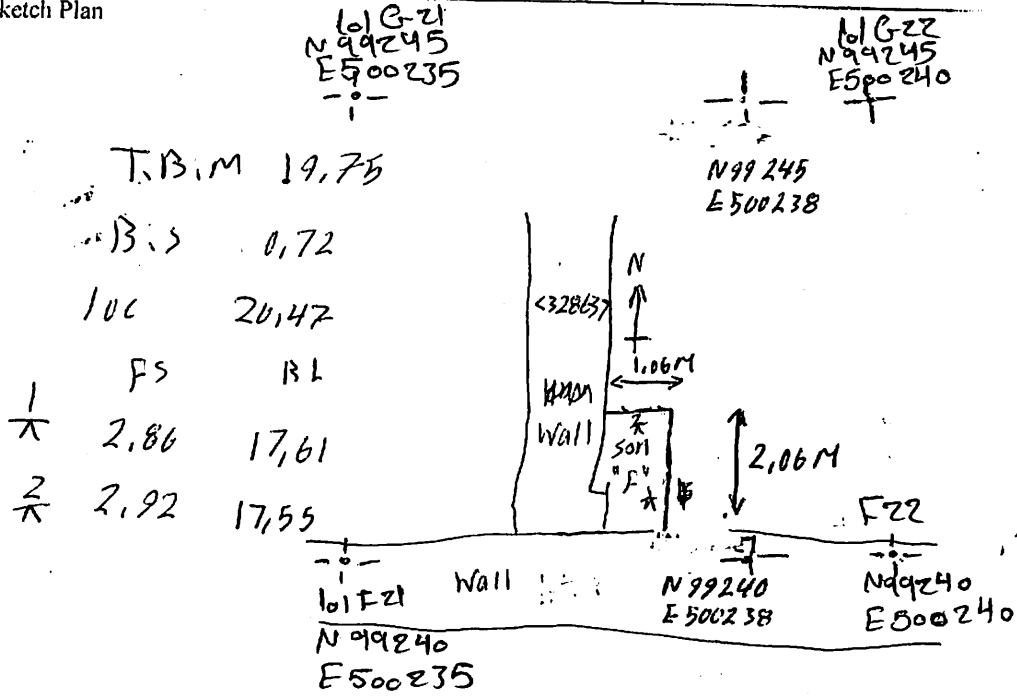 ketch Plan
101 G-21
N 99245
E500235
101 G22
N 99245
E500240
N 99 245
E 500238
T.B.M 19,75
B.S 0,72
20,47
FS
1 2,86 17,61
2 2,92 17,55
<328637
N
1,06M
Wall
"F"
2,06 M
F22
N 99240
E 500240
N 99240
E 500238
Wall
101 F21
N 99240
E 500235